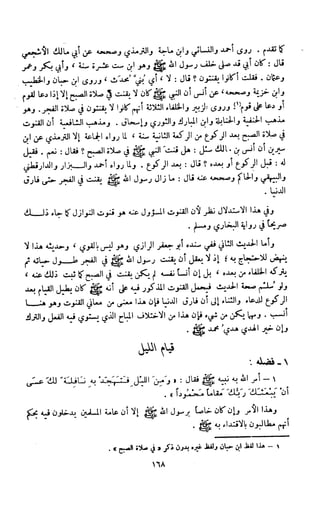 كما تقدم . روى أحمد والنسائي وابن ماجة والترمذي وصححه عن أبي مالك الأشجعي
قال : كان أبي قد صلى خلف رسول الله ﷺ وهو ابن ست عشرة سنة ، وأبي بكر وعمر
وعثمان . فقلت أكانوا يقنتون ؟ قال : لا ، أي بُنيّ مُحدَث ، وروى ابن حبان والخطيب
وابن خزيمة وصححه ، عن أنس أن النبي ﷺ كان لا يقنت في صلاة الصبح إلا إذا دعا لقوم
أو دعا على قوم (١) وروى الزبير والخلفاء الثلاثة أنهم كانوا لا يقنتون في صلاة الفجر . وهو
مذهب الحنفية والحنابلة وابن المبارك والثوري وإسحاق . ومذهب الشافعية أن القنوت
في صلاة الصبح بعد الركوع من الركعة الثانية سنة ، لما رواه الجماعة إلا الترمذي عن ابن
سيرين أن أنس بن مالك سئل : هل قنت النبي ﷺ في صلاة الصبح ؟ فقال : نعم . فقيل
له : قبل الركوع أو بعده ؟ قال : بعد الركوع . ولما رواه أحمد والبزار والدارقطني
والبيهقي والحاكم وصححه عنه قال : ما زال رسول الله ﷺ يقنت في الفجر حتى فارق
الدنيا .
وفي هذا الاستدلال نظر لأن القنوت المسؤول عنه هو قنوت النوازل كما جاء ذلك
صريحاً في رواية البخاري ومسلم .
وأما الحديث الثاني ففي سنده أبو جعفر الرازي وهو ليس بالقوي ، وحديثه هذا لا
ينهض للاحتجاج به ؛ إذ لا يعقل أن يقنت رسول الله ﷺ في الفجر طول حياته ثم
يتركه الخلفاء من بعده ، بل إن أنساً نفسه لم يكن يقنت في الصبح كما ثبت ذلك عنه ،
ولو سُلم صحة الحديث فيحمل القنوت المذكور فيه على أنه ﷺ كان يطيل القيام بعد
الركوع للدعاء والثناء إلى أن فارق الدنيا فإن هذا معنى من معاني القنوت وهو هنا
أنسب . ومهما يكن من شيء فإن هذا من الاختلاف المباح الذي يستوي فيه الفعل والترك
وإن خير الهدي هدي محمد ﷺ .
قيام الليل
١ - فضله :
١ - أمر الله به نبيه ﷺ فقال : « ومِنَ اللَّيلِ فَتَهَجَّدْ بِهِ نافِلَةً لَكَ عَسى
أنْ يَبْعَثَكَ رَبُّكَ مَقاماً مَحْمُوداً » .
وهذا الأمر وإن كان خاصاً برسول الله ﷺ إلا أن عامة المسلمين يدخلون فيه بحكم
أنهم مطالبون بالاقتداء به ﷺ .
١ - هذا لفظ ابن حبان ولفظ غيره بدون ذكر « في صلاة الصبح » .
١٦٨